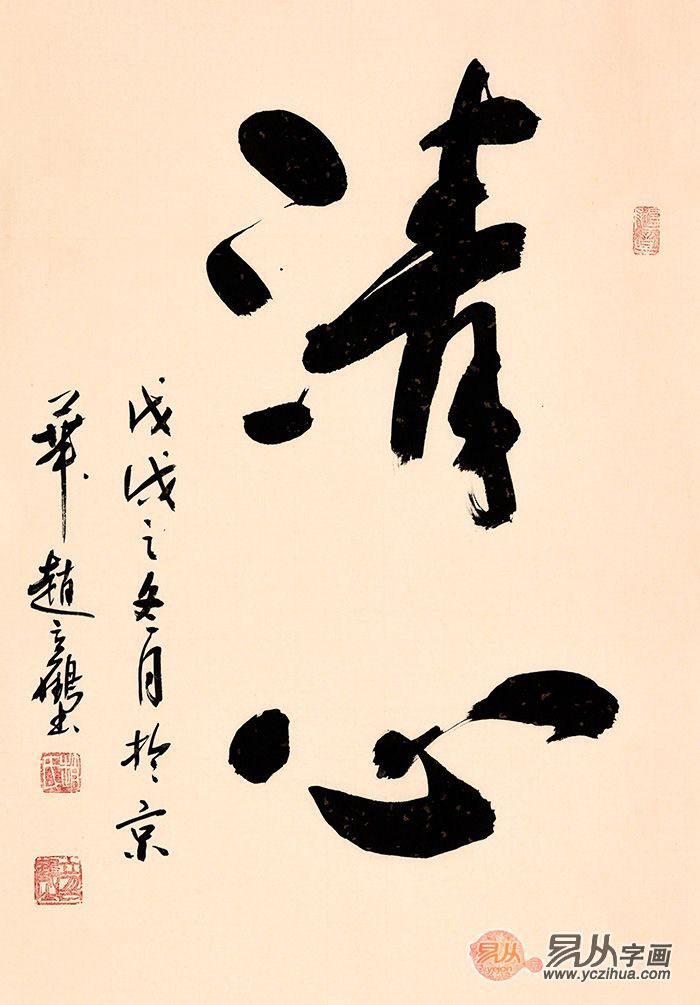 清心
戊戌之冬月於京
華趙立鶴書
易从
yejon
易从字画
www.yczihua.com